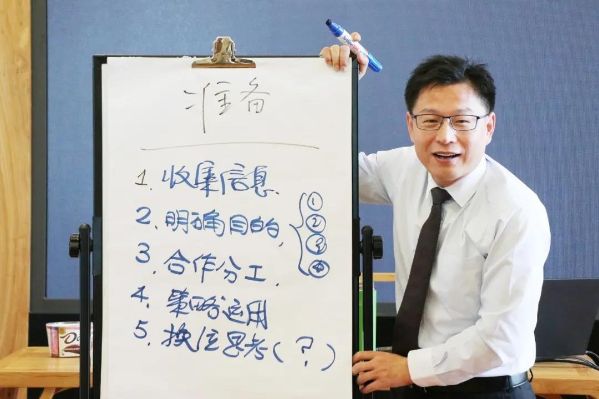 准备
1. 收集信息.
2. 明确目的, { ① ② ③ ④
3. 合作分工.
4. 策略运用
5. 换位思考(?)